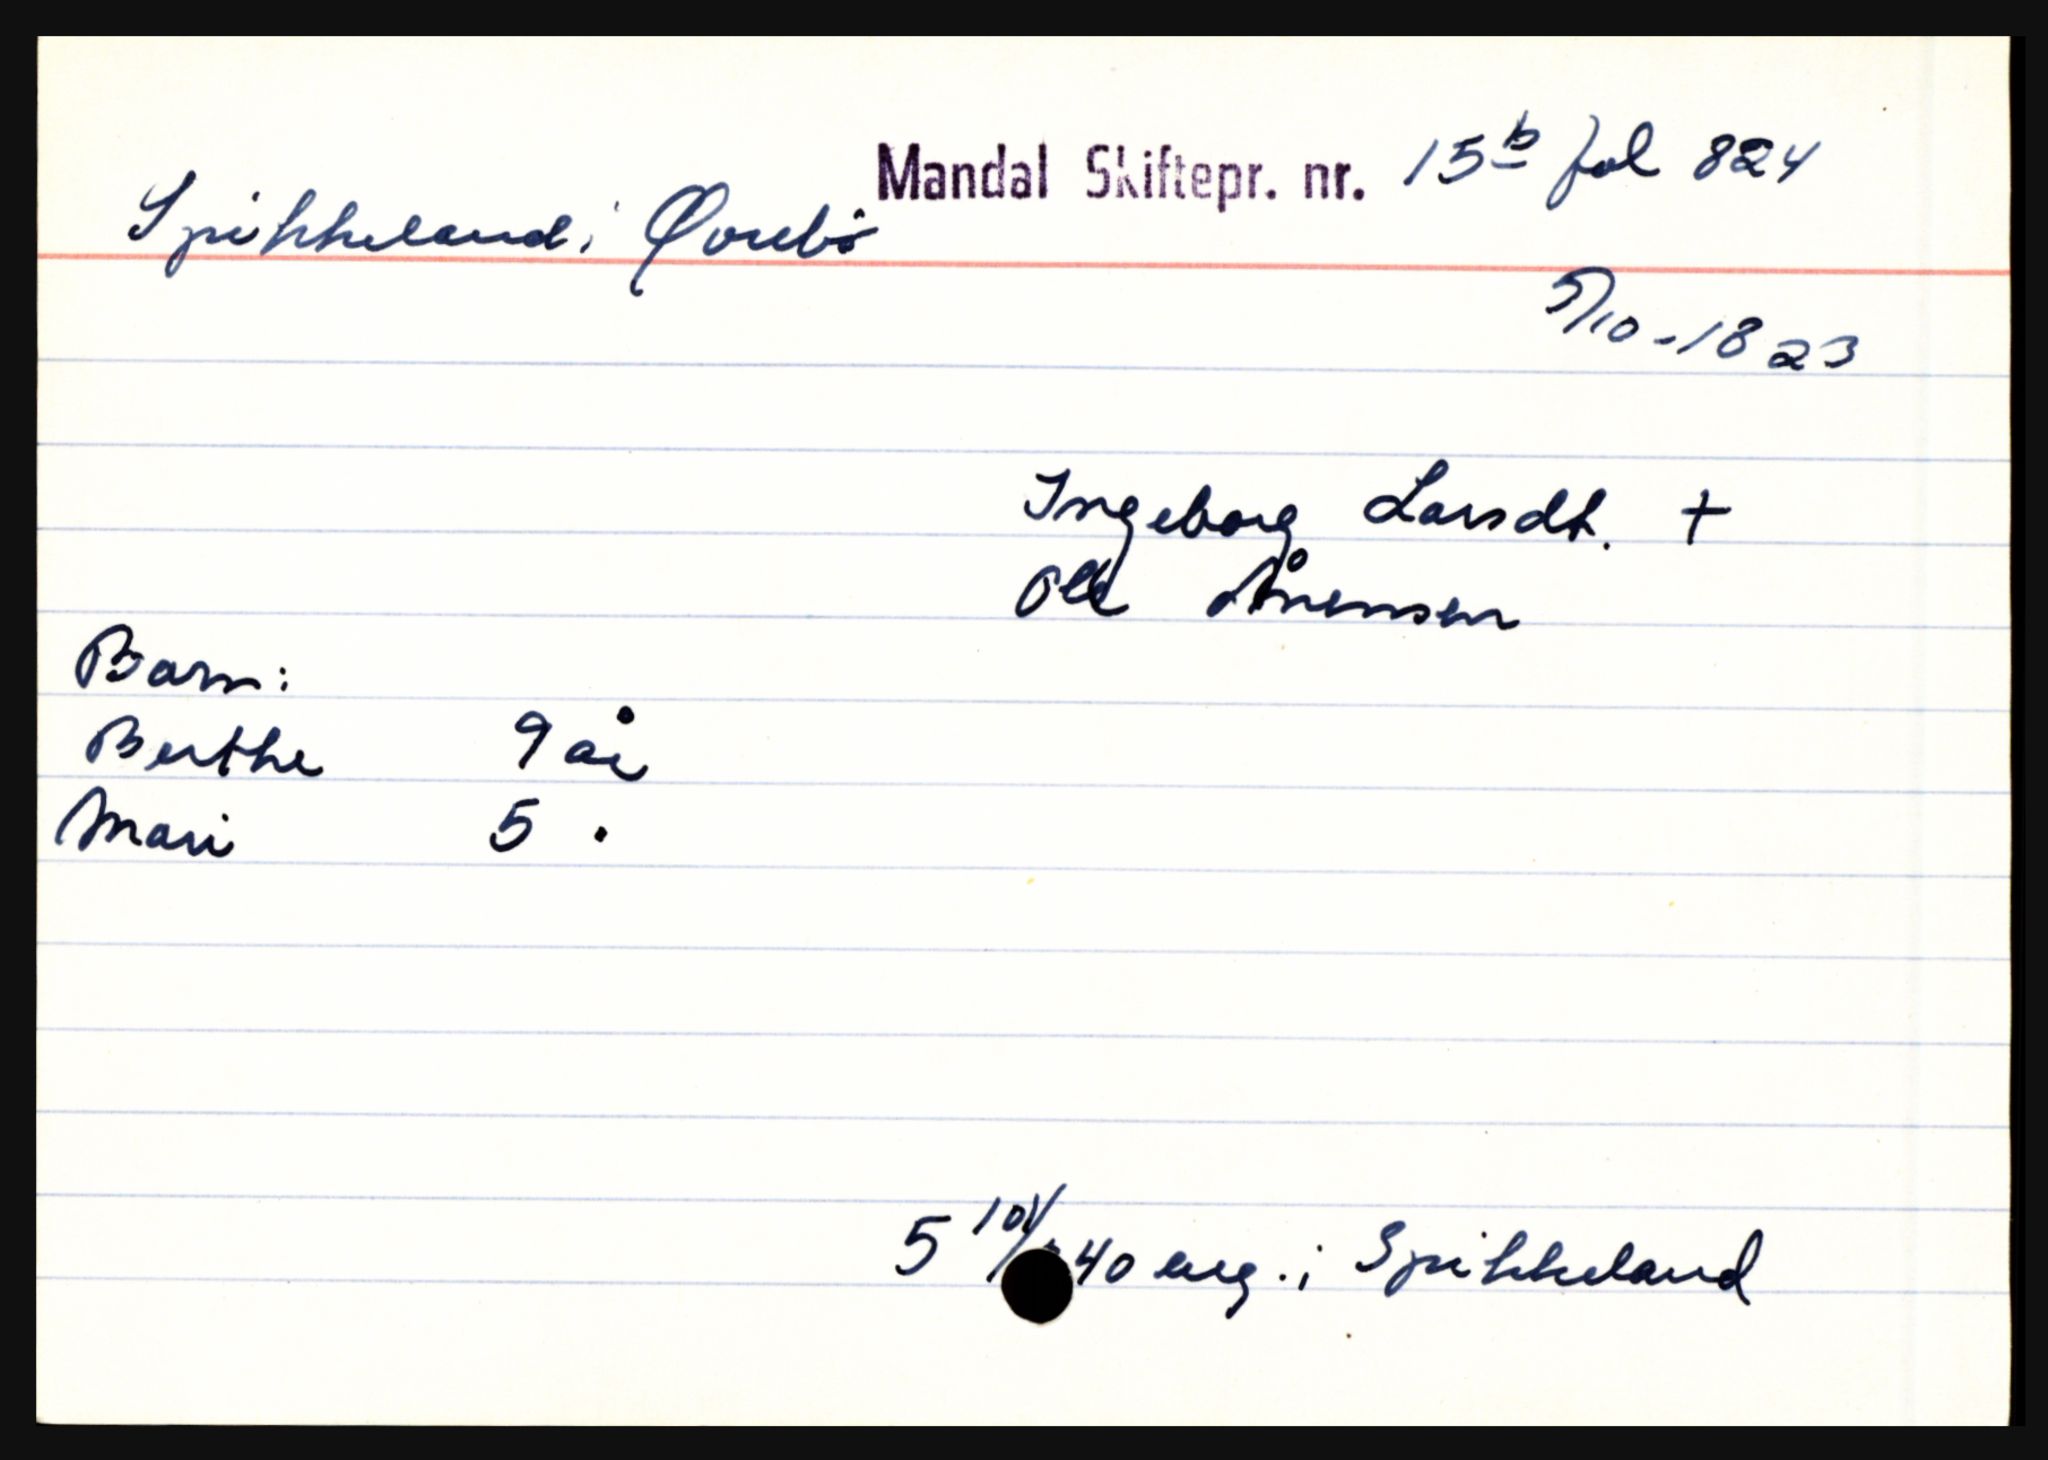 Mandal Skiftepr. nr. 15b fol 824
Spikkeland i Øvrebö
5/10-1823
Ingeborg Larsdt. +
Ole Ånensen
Barn:
Berthe 9 år
Mari 5 "
5 40 eng. i Spikkeland